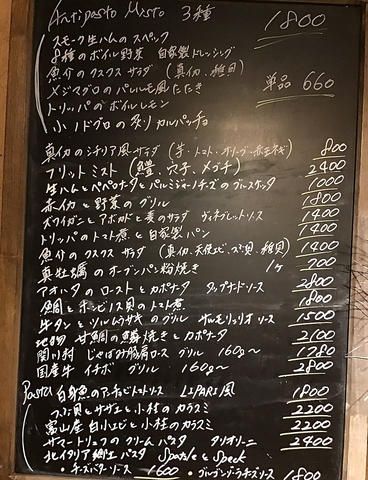 Antipasto Misto 3種 1800
スモーク生ハムのスペック
8種のボイル野菜 自家製ドレッシング
魚介のクスクスサラダ (真イカ、稚貝)
メジマグロのパレルモ風たたき 単品 660
トリッパのボイルレモン
小ノドグロの炙りカルパッチョ
真イカのシチリア風サラダ (芋・トマト・オリーブ・赤玉ネギ) 800
フリットミスト (鱧、穴子、メゴチ) 2400
生ハムとペペロナータとパルミジャーノチーズのブルスケッタ 1000
赤イカと野菜のグリル 1800
ズワイガニとアボカドと麦のサラダ ヴィネグレットソース 1400
トリッパのトマト煮と自家製パン 1400
魚介のクスクスサラダ (真イカ、天使エビ、ツブ貝、稚貝) 1400
真牡蠣のオーブンパン粉焼き 1ヶ 700
アオハタのローストとカポナータ タップナードソース 2800
鯛とホンビノス貝のトマト煮 1800
牛タンとツルムラサキのグリル サルモリッリオソース 1500
地物 甘鯛の鱗焼きとカポナータ 2100
関川村 じゃばみ豚肩ロース グリル 160g〜 1780
国産牛 イチボ グリル 160g〜 2800
Pasta 白身魚のアンチョビトマトソース LIPARI風 1800
つぶ貝とサザエと小柱のカラスミ 2200
富山産白エビと小柱のカラスミ 2200
サマートリュフのクリームパスタ タリオリーニ 2400
北イタリア郷土パスタ Spatzle と Speck
・チーズバターソース 1600 ・ゴルゴンゾーラチーズソース 1800